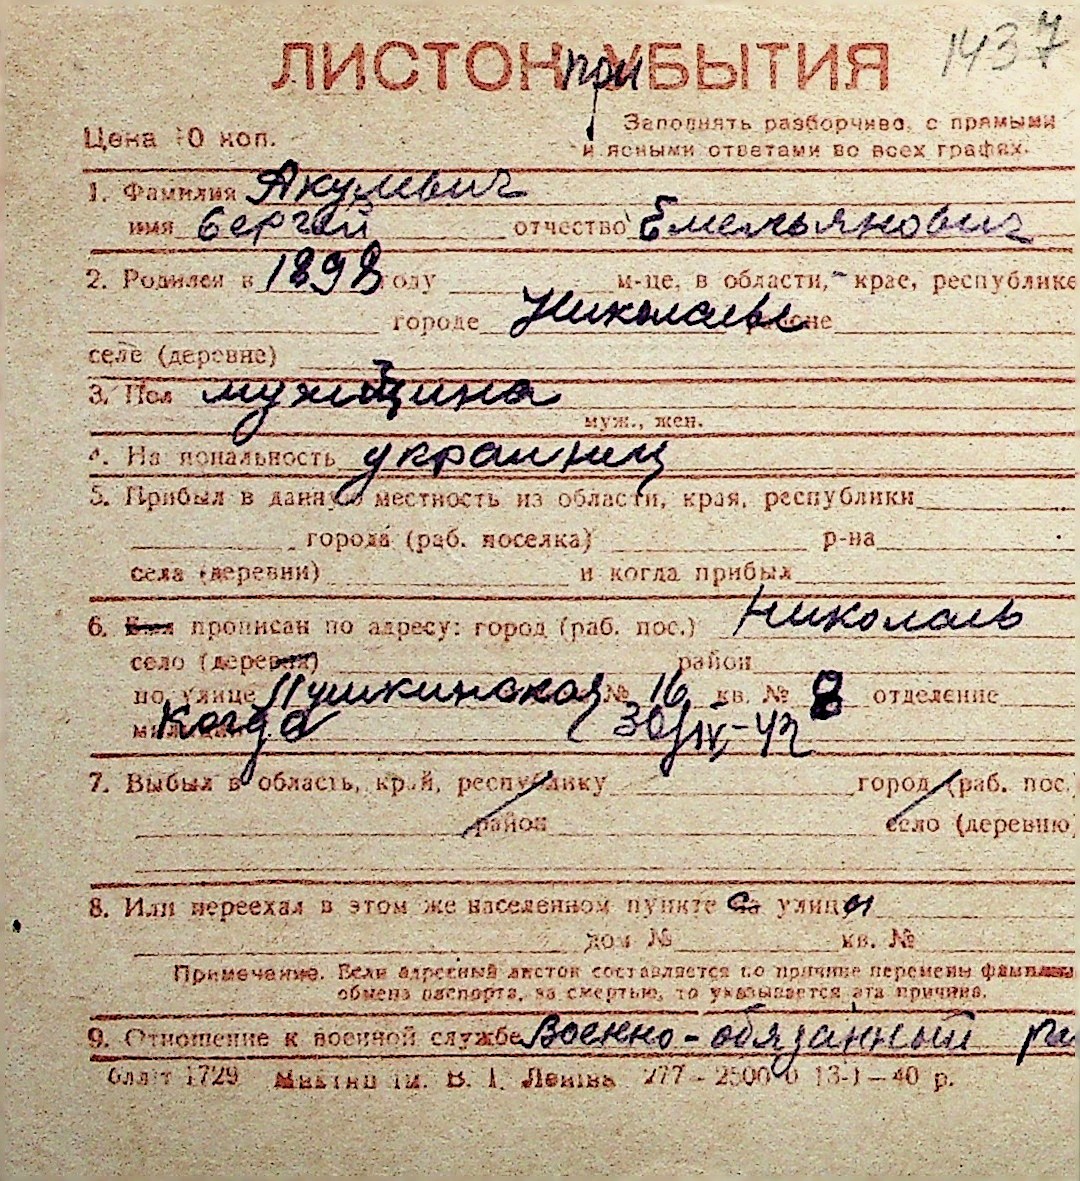 1437
ЛИСТОК при УБЫТИЯ
Цена 10 коп.
Заполнять разборчиво, с прямыми
и ясными ответами во всех графах.
1. Фамилия Акулевич
имя Сергей отчество Емельянович
2. Родился в 1898 году м-це, в области, крае, республике
городе Николаеве районе
селе (деревне)
3. Пол мужщина
муж., жен.
4. Национальность украинец
5. Прибыл в данную местность из области, края, республики
города (раб. поселка) р-на
села (деревни) и когда прибыл
6. Был прописан по адресу: город (раб. пос.) Николаев
село (деревня) район
по улице Пушкинская № 16 кв. № 8 отделение
милиции Когда 30/IX-42
7. Выбыл в область, край, республику город (раб. пос.)
район село (деревню)
8. Или переехал в этом же населенном пункте с улицы
дом № кв. №
Примечание. Если адресный листок составляется по причине перемены фамилии
обмена паспорта, за смертью, то указывается эта причина.
9. Отношение к военной службе Военно-обязанный
1729 ім. В. І. Леніна 277 — 13-I—40 р.